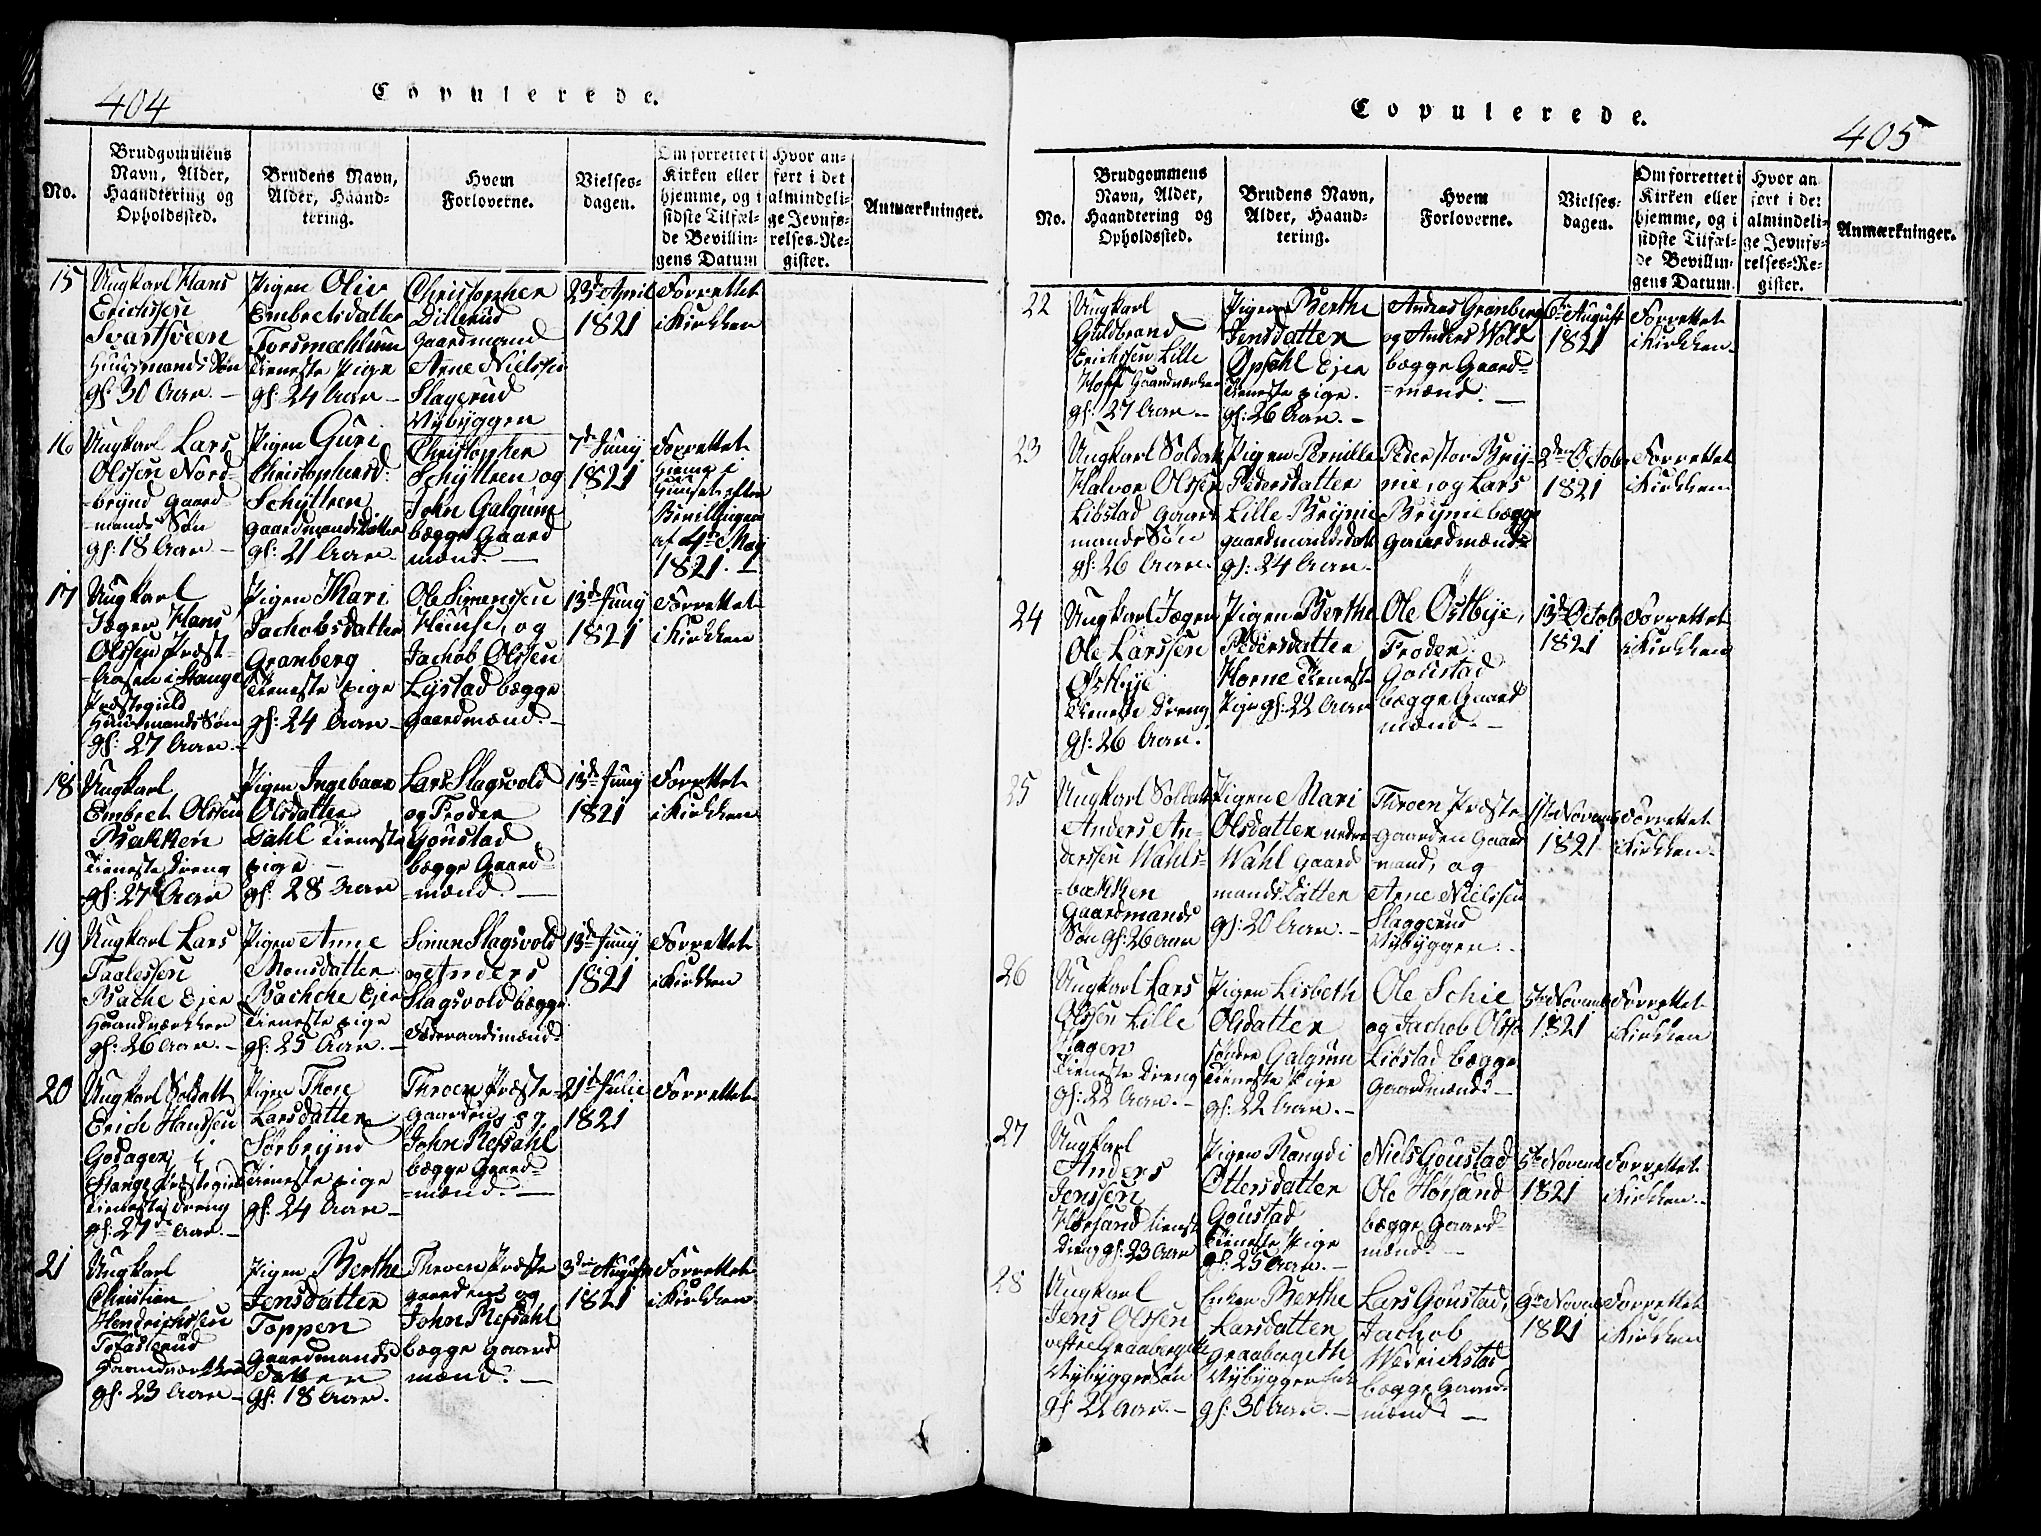 404
Copulerede.
No.
Brudgommens Navn, Alder, Haandtering og Opholdssted.
Brudens Navn, Alder, Haandtering.
Hvem Forloverne.
Vielsesdagen.
Om forrettet i Kirken eller hjemme, og i sidste Tilfælde Bevillingens Datum
Hvor anført i det almindelige Jevnførelses-Register.
Anmærkninger.
15
Ungkarl Hans
Erichssen
Svartsveen
Huusmands Søn
gl: 30 Aar. –
Pigen Oliv
Embretsdatter
Torsmæhlum
Tieneste Pige
gl: 24 Aar –
Christopher
Dillerud
Gaardmand
Arne Nielssen
Slagerud
Nybygger
23d April
1821
Forrettet
i Kirken
16
Ungkarl Lars
Olssen Nord-
-brynd Gaard-
-mands Søn
gl: 18 Aar –
Pigen Guri
Christophersd:
Schytten
Gaardmandsdatter
gl: 21 Aar –
Christopher
Schytten og
John Galgum
bægge Gaard
mænd. –
7d Juny
1821
Forrettet
hiemme i
Huuset efter
Bevillingen
af 4de May
1821.
17
Ungkarl
Jæger Hans
Olssen Præst-
-aasen i Stange
Præstegield
Huusmands Søn
gl: 27 Aar. –
Pigen Kari
Jachobsdatter
Granberg
Tieneste Pige
gl: 24 Aar –
Ole Simenssen
Huuse, og
Jachob Olssen
Lystad bægge
Gaardmænd. –
13d Juny
1821
Forrettet
i Kirken
18
Ungkarl
Embret Olssen
Bakken
Tieneste Dreng
gl: 27 Aar
Pigen Ingebaar
Olsdatter
Dahl Tieneste
pige –
gl: 28 Aar
Lars Slagsvold
og Froder
Goustad
bægge Gaard-
-mænd. –
13d Juny
1821
Forrettet
i Kirken
19
Ungkarl Lars
Taalessen
Bache Ejer
Haandværcker
gl: 26 Aar. –
Pigen Anne
Monsdatter
Bachche Ejer
Tieneste pige
gl: 25 Aar. –
Simen Slagsvold
og Anders
Slagsvold bægge
Føderaadsmænd
13d Juny
1821
Forrettet
i Kirken
20
Ungkarl Soldatt
Erich Hanssen
Godager i
Stange Præstegield
Tieneste Dreng
gl: 27 Aar. –
Pigen Thore
Larsdatter
Sørbrynd
Tieneste pige
gl: 24 Aar –
Throen Præste-
gaarden, og
John Refsahl
bægge Gaard-
-mænd. –
21d Julie
1821
Forrettet
21
Ungkarl
Christian
Hendrichssen
Tofasterud
Haandværcker
gl: 23 Aar –
Pigen Berthe
Jensdatter
Toppen
Gaardmands
datter
gl: 18 Aar.
Throen Præste
gaarden og
John Refsahl
bægge Gaard
mænd. –
3die August
1821
Forrettet
i Kirken
Copulerede.
405
No.
Brudgommens Navn, Alder, Haandtering og Opholdssted.
Brudens Navn, Alder, Haandtering.
Hvem Forloverne.
Vielsesdagen.
Om forrettet i Kirken eller hjemme, og i sidste Tilfælde Bevillingens Datum.
Hvor anført i det almindelige Jevnførelses-Register.
Anmærkninger.
22
Ungkarl
Guldbrand
Erichssen Lille
Hoff Haandværcker
gl: 27 Aar –
Pigen Berthe
Jensdatter
Opsahl Ejer
Tieneste pige.
gl: 26 Aar. –
Anders Granberg
og Anders Wold
bægge Gaard-
-mænd. –
6te August
1821
Forrettet
i Kirken
23
Ungkarl Soldat
Halvor Olssen
Libstad Gaard
mands Søn
gl: 26 Aar.
Pigen Pernille
Pedersdatter
Lille Brynie
gaardmandsdatt
gl: 24 Aar. –
Peder stor Bry-
nie, og Lars
Brynie bægge
Gaardmænd
2den Octob
1821
Forrettet
i Kirken
24
Ungkarl Jæger
Ole Larssen
Østbye
Tieneste Dreng
gl: 26 Aar.
Pigen Berthe
Pedersdatter
Horne Tieneste
Pige gl: 22 Aar
Ole Østbye,
Froder
Goustad
bægge Gaard
mænd. –
13d Octob
1821
Forrettet
i Kirken
25
Ungkarl Soldatt
Anders An-
derssen Wahls-
-bakken
Gaardmands
Søn gl: 26 Aar
Pigen Mari
Olsdatter nedre
Wahl Gaard
mands Datter
gl: 20 Aar. –
Throen Præste-
gaarden Gaard
mand, og
Arne Nielssen
Slaggerud
Nybygger. –
1ste Novemb
1821
Forrettet
i Kirken
26
Ungkarl Lars
Olssen Lille
Hagen
Tieneste Dreng
gl: 22 Aar. –
Pigen Lisbeth
Olsdatter
søndre Galgum
Tieneste Pige
gl: 22 Aar. –
Ole Schie
og Jachob Olss
Libstad bægge
Gaardmænd. –
5te Novemb
1821
Forrettet
i Kirken
27
Ungkarl
Anders
Jenssen
Hørsand tieneste
Dreng gl: 23 Aar
Pigen Rangdi
Ottersdatter
Goustad
Tieneste Pige
gl: 25 Aar. –
Niels Goustad
Ole Hørsand
bægge Gaard-
mænd. –
5te Novemb
1821
Forrettet
i Kirken
28
Ungkarl
Jens Olssen
østre Graaberget
Nybygger Søn
gl: 22 Aar. –
Enken Berthe
Larsdatter
Graabergeth
Nybygger Enke
gl: 30 Aar. –
Lars Goustad,
Jachob
Wedrichstad
bægge Gaard-
mænd. –
9de Novemb
1821
Forrettet
i Kirken